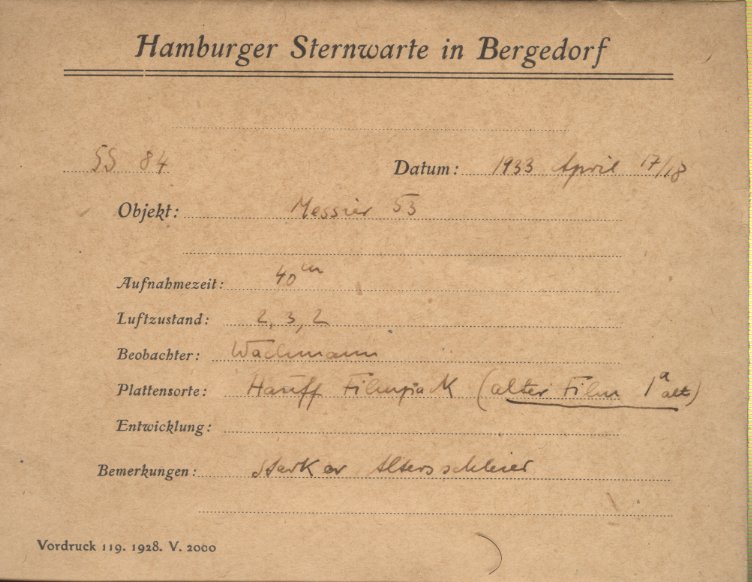 Hamburger Sternwarte in Bergedorf
SS 84 Datum: 1933 April 17/18
Objekt: Messier 53
Aufnahmezeit: 40m
Luftzustand: 2, 3, 2
Beobachter: Wachmann
Plattensorte: Hauff Filmpack (alter Film 1a alt)
Entwicklung:
Bemerkungen: starker Altersschleier
Vordruck 119. 1928. V. 2000